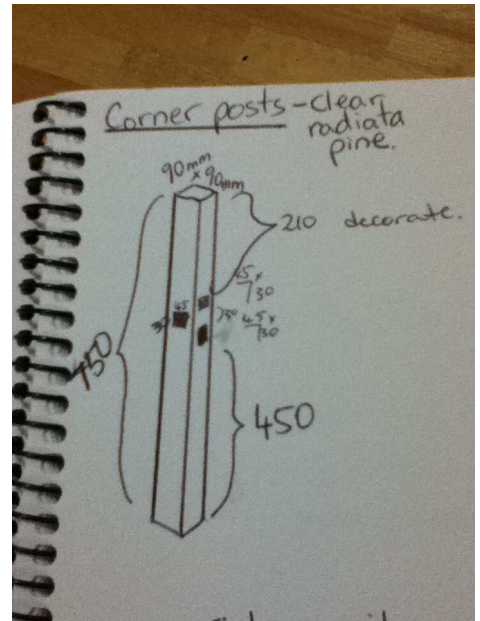 Corner posts - clear
radiata
pine.
90mm
x 90mm
210 decorate.
45 x
30
45
30
30
45 x
30
750
450